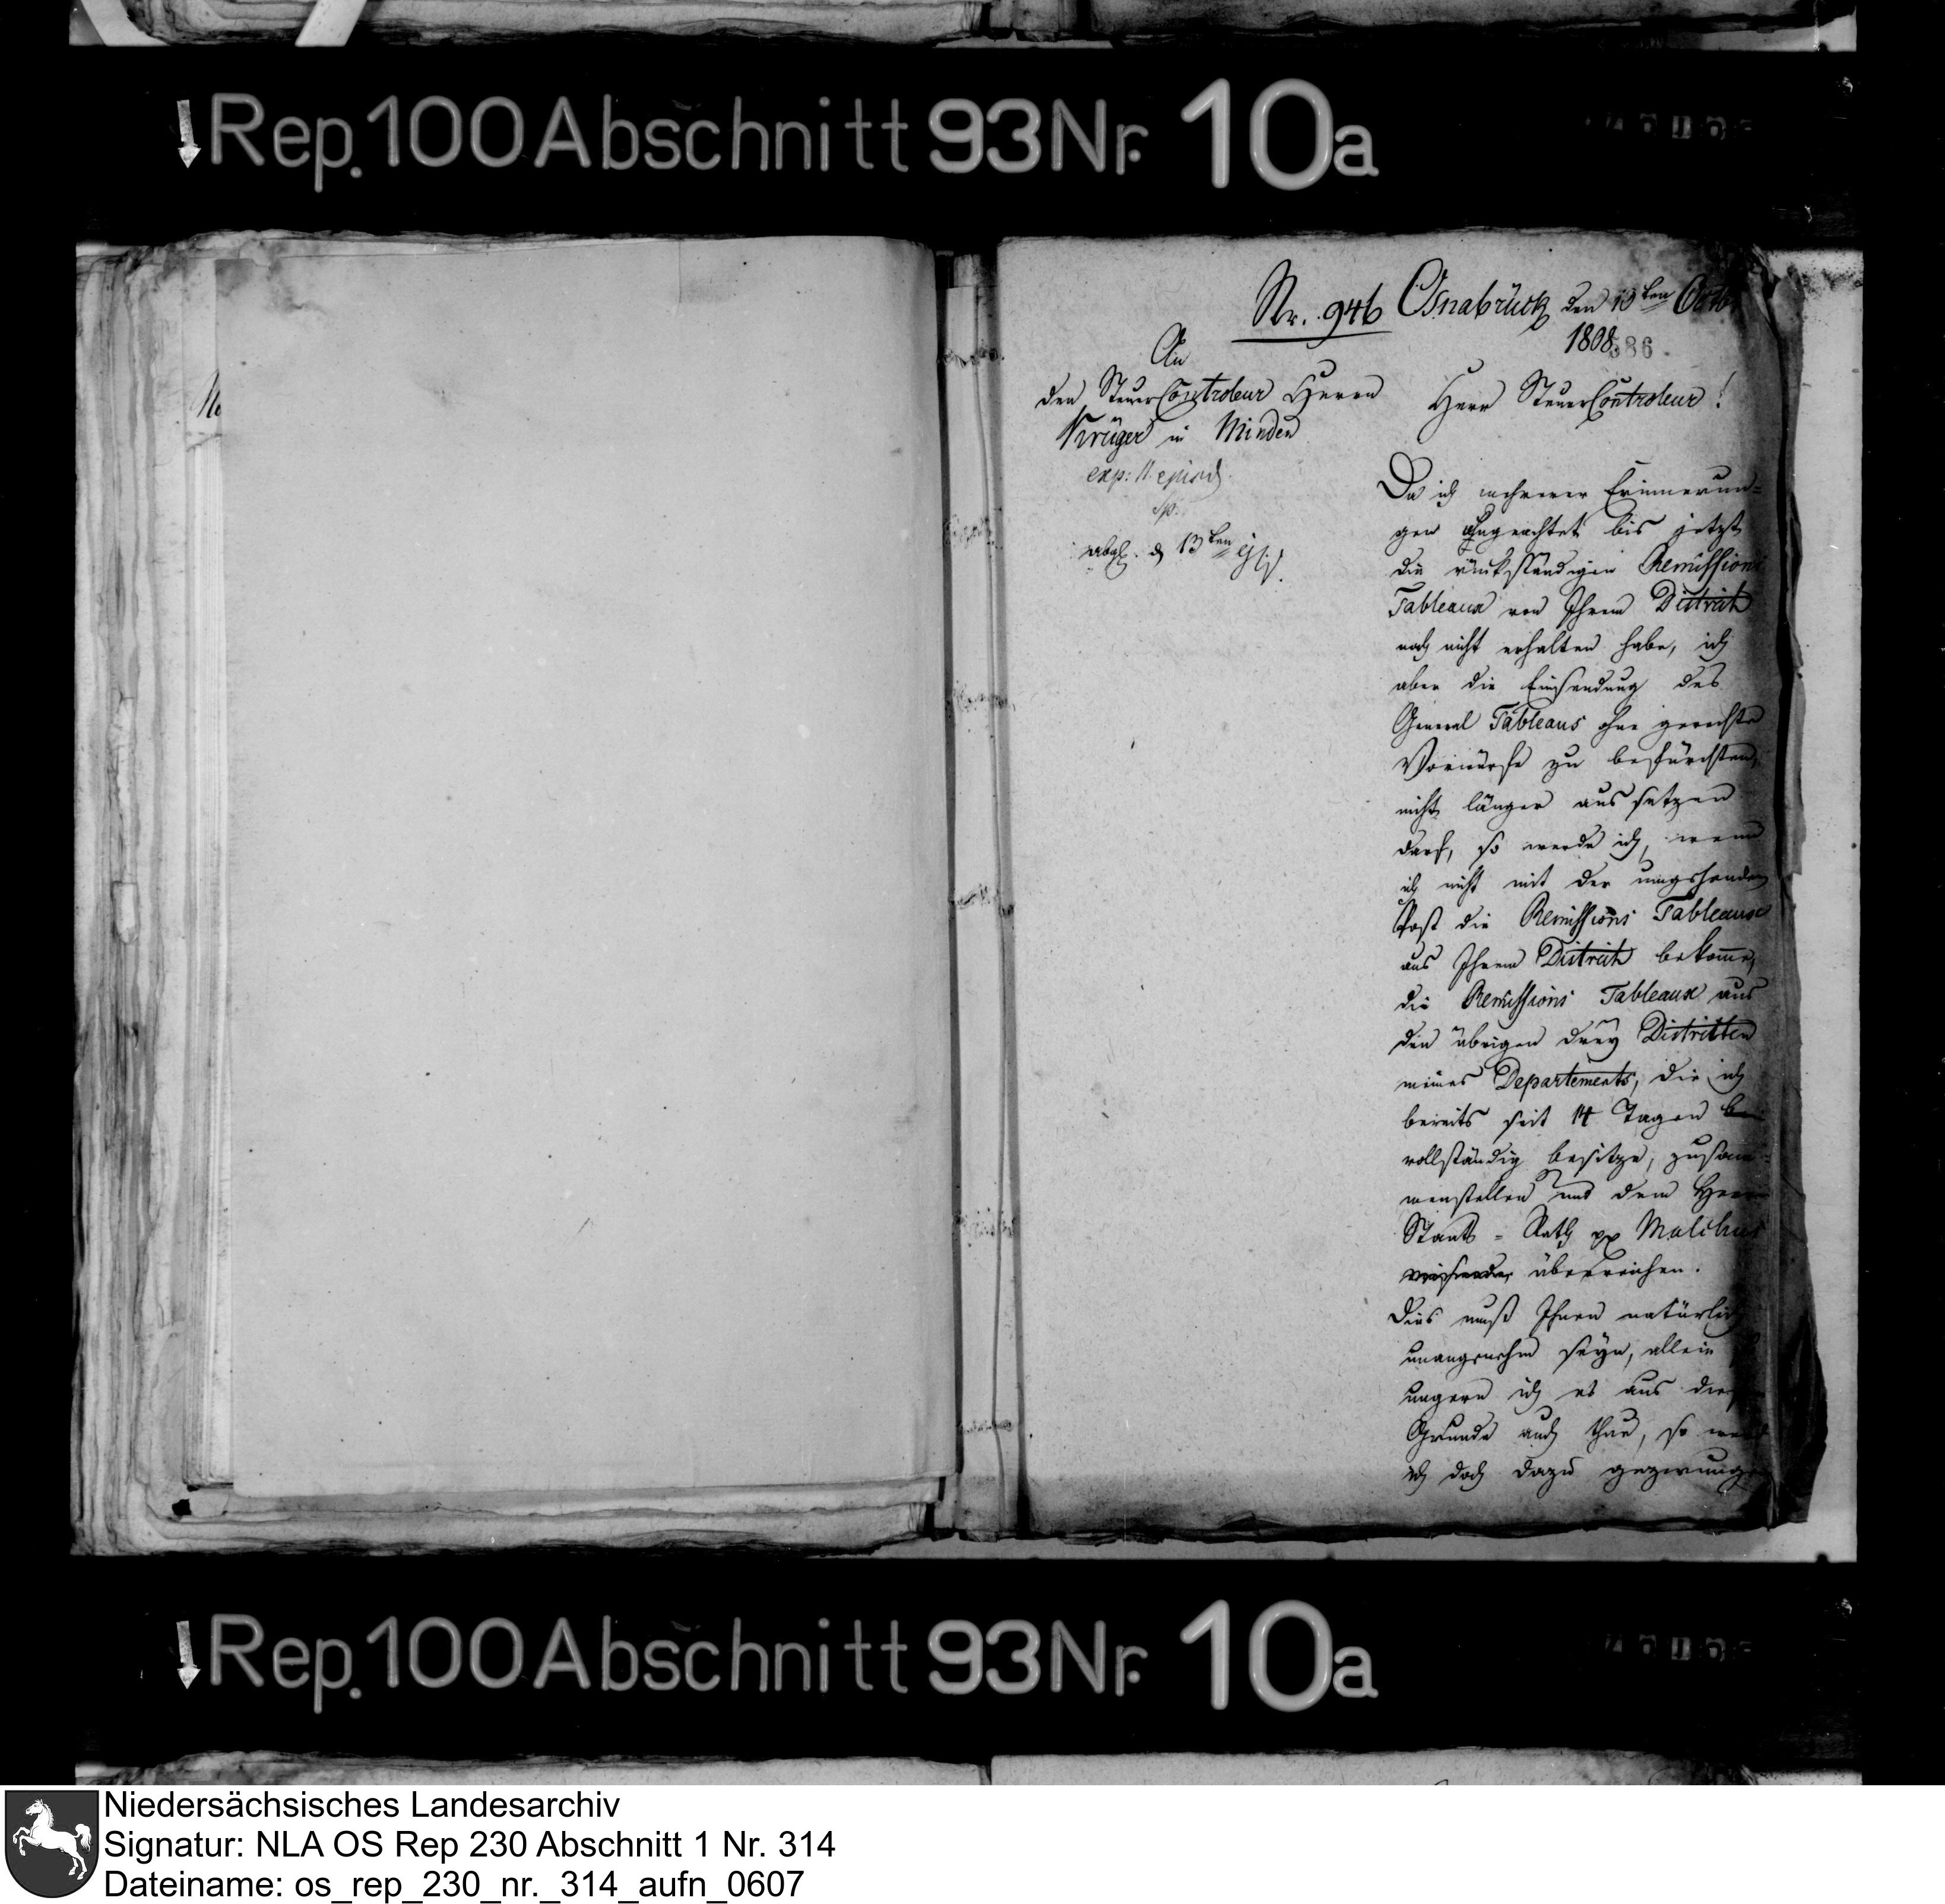 Rep. 100 Abschnitt 93 Nr. 10a
Nr. 946 Osnabrück den 13ten Octbr
1808
586
An
den SteuerControleur Herrn
Krüger in Minden
exp: 11.
sp.
abgl. d 13ten ejsd.
Herr SteuerControleur!
Da ich mehrerer Erinnerun=
gen ohngeachtet bis jetzt
die rückständigen Remissions
Tableaux von Ihrem District
noch nicht erhalten habe, ich
aber die Einsendung des
General Tableaus ohne gerechte
Vorwürfe zu befürchten,
nicht länger aussetzen
darf, so werde ich, wenn
ich nicht mit der umgehenden
Post die Remissions Tableaux
aus Ihrem District bekomme,
die Remissions Tableaux aus
den übrigen drey Districten
meines Departements, die ich
bereits seit 14 Tagen
vollständig besitze, zusam=
menstellen und dem Herrn
Staats=Rath pp Malchus
überreichen.
Dies muß Ihnen natürlich
unangenehm seyn, allein
ungern ich es aus
Grunde auch thue, so werde
ich doch dazu gezwungen
Rep. 100 Abschnitt 93 Nr. 10a
Niedersächsisches Landesarchiv
Signatur: NLA OS Rep 230 Abschnitt 1 Nr. 314
Dateiname: os_rep_230_nr._314_aufn_0607